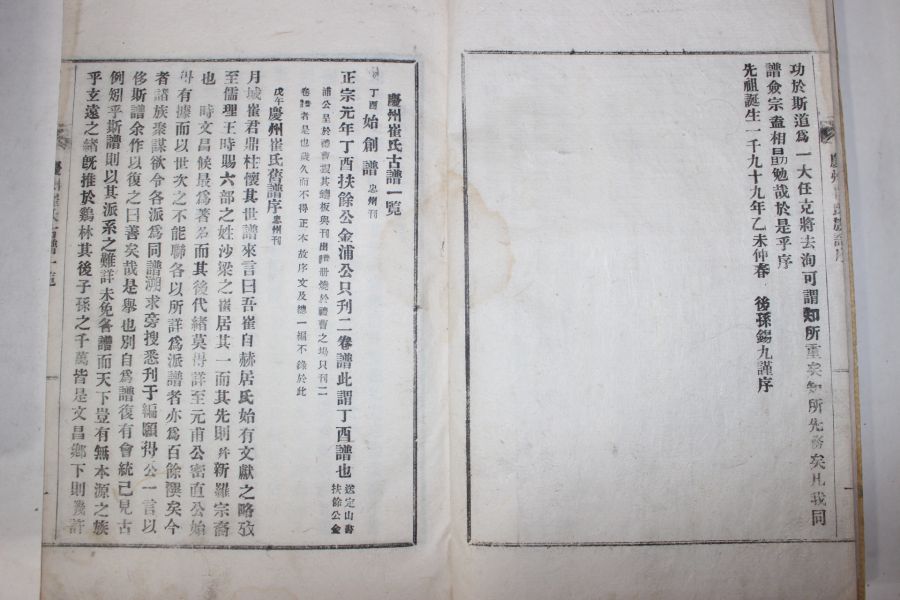 功於斯道爲一大任克將去洵可謂知所重矣知所先務矣凡我同
譜僉宗盍相勗勉哉於是乎序
先祖誕生一千九十九年乙未仲春 後孫錫九謹序
慶州崔氏古譜一覧
正宗元年丁酉扶餘公金浦公只刋二卷譜此謂丁酉譜也 送定山
扶餘公金
丁酉始創譜 忠州刋
浦公呈於禮曹觀其總板與刋出譜冊燒於禮曹之場只刋二
卷譜者是也歲久而不得正本故序文及總一編不錄於此
戊午慶州崔氏舊譜序 忠州刋
月城崔君鼎柱懷其世譜來言曰吾崔自赫居氏始有文獻之略攷
至儒理王時賜六部之姓沙梁之崔居其一而其先則於新羅宗裔
也 時文昌候最爲著名而其後代緖莫得詳至元甫公密直公始
得有據而以世次之不能聯各以所詳爲派譜者亦爲百餘禩矣今
者諸族聚謀欲令各派爲同譜溯求旁搜悉刋于編願得公一言以
侈斯譜余作以復之曰善矣哉是舉也別自爲譜復有會統己見古
例矧乎斯譜則以其派系之難詳未免各譜而天下豈有無本源之族
乎玄遠之緖旣推於鷄林其後子孫之千萬皆是文昌鄉下則幾許
慶州崔氏古譜一覧